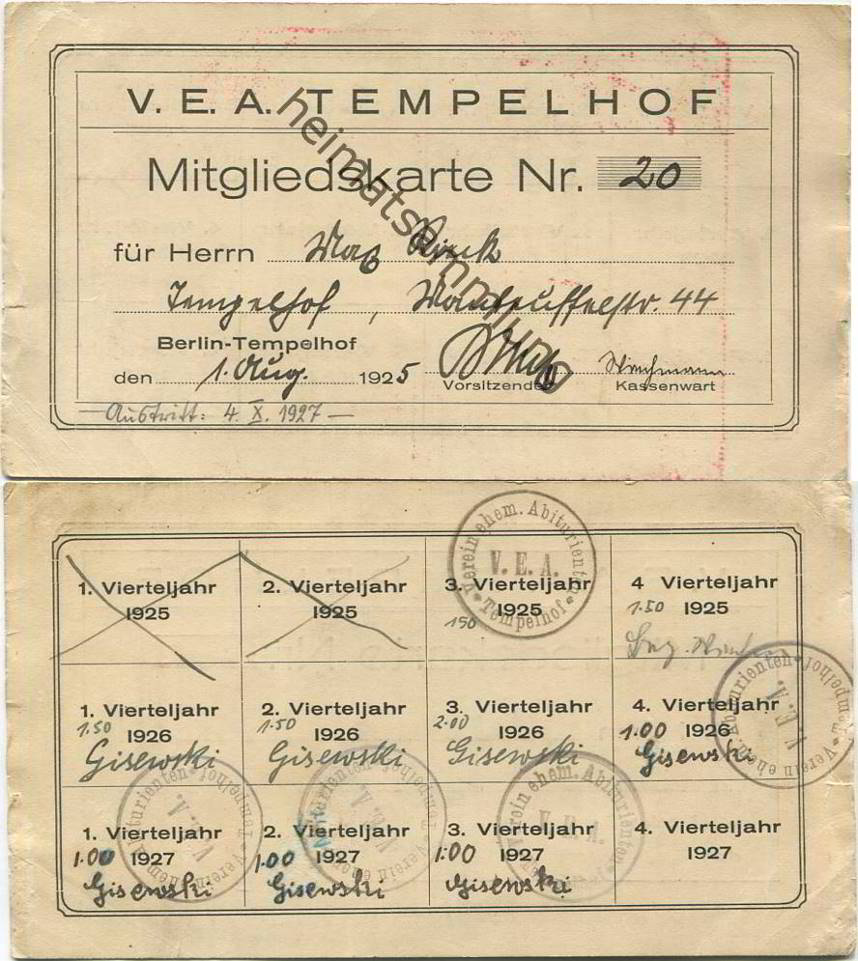 V. E. A. TEMPELHOF
Mitgliedskarte Nr. 20
für Herrn Max
Tempelhof, Manteuffelstr. 44
Berlin-Tempelhof
den 1. Aug. 1925
Vorsitzender
Kassenwart
Austritt: 4. X. 1927
heimatsammlung
Verein ehem. Abiturienten
V. E. A.
Tempelhof
1. Vierteljahr 1925
2. Vierteljahr 1925
3. Vierteljahr 1925
150
4 Vierteljahr 1925
1.50
Verein ehem. Abiturienten
V. E. A.
Tempelhof
1. Vierteljahr 1926
1.50
Gisewski
2. Vierteljahr 1926
1.50
Gisewski
3. Vierteljahr 1926
2.00
Gisewski
4. Vierteljahr 1926
1.00
Gisewski
Verein ehem. Abiturienten
V. E. A.
Tempelhof
Verein ehem. Abiturienten
V. E. A.
Tempelhof
Verein ehem. Abiturienten
V. E. A.
Tempelhof
1. Vierteljahr 1927
1.00
Gisewski
2. Vierteljahr 1927
1.00
Gisewski
3. Vierteljahr 1927
1.00
Gisewski
4. Vierteljahr 1927